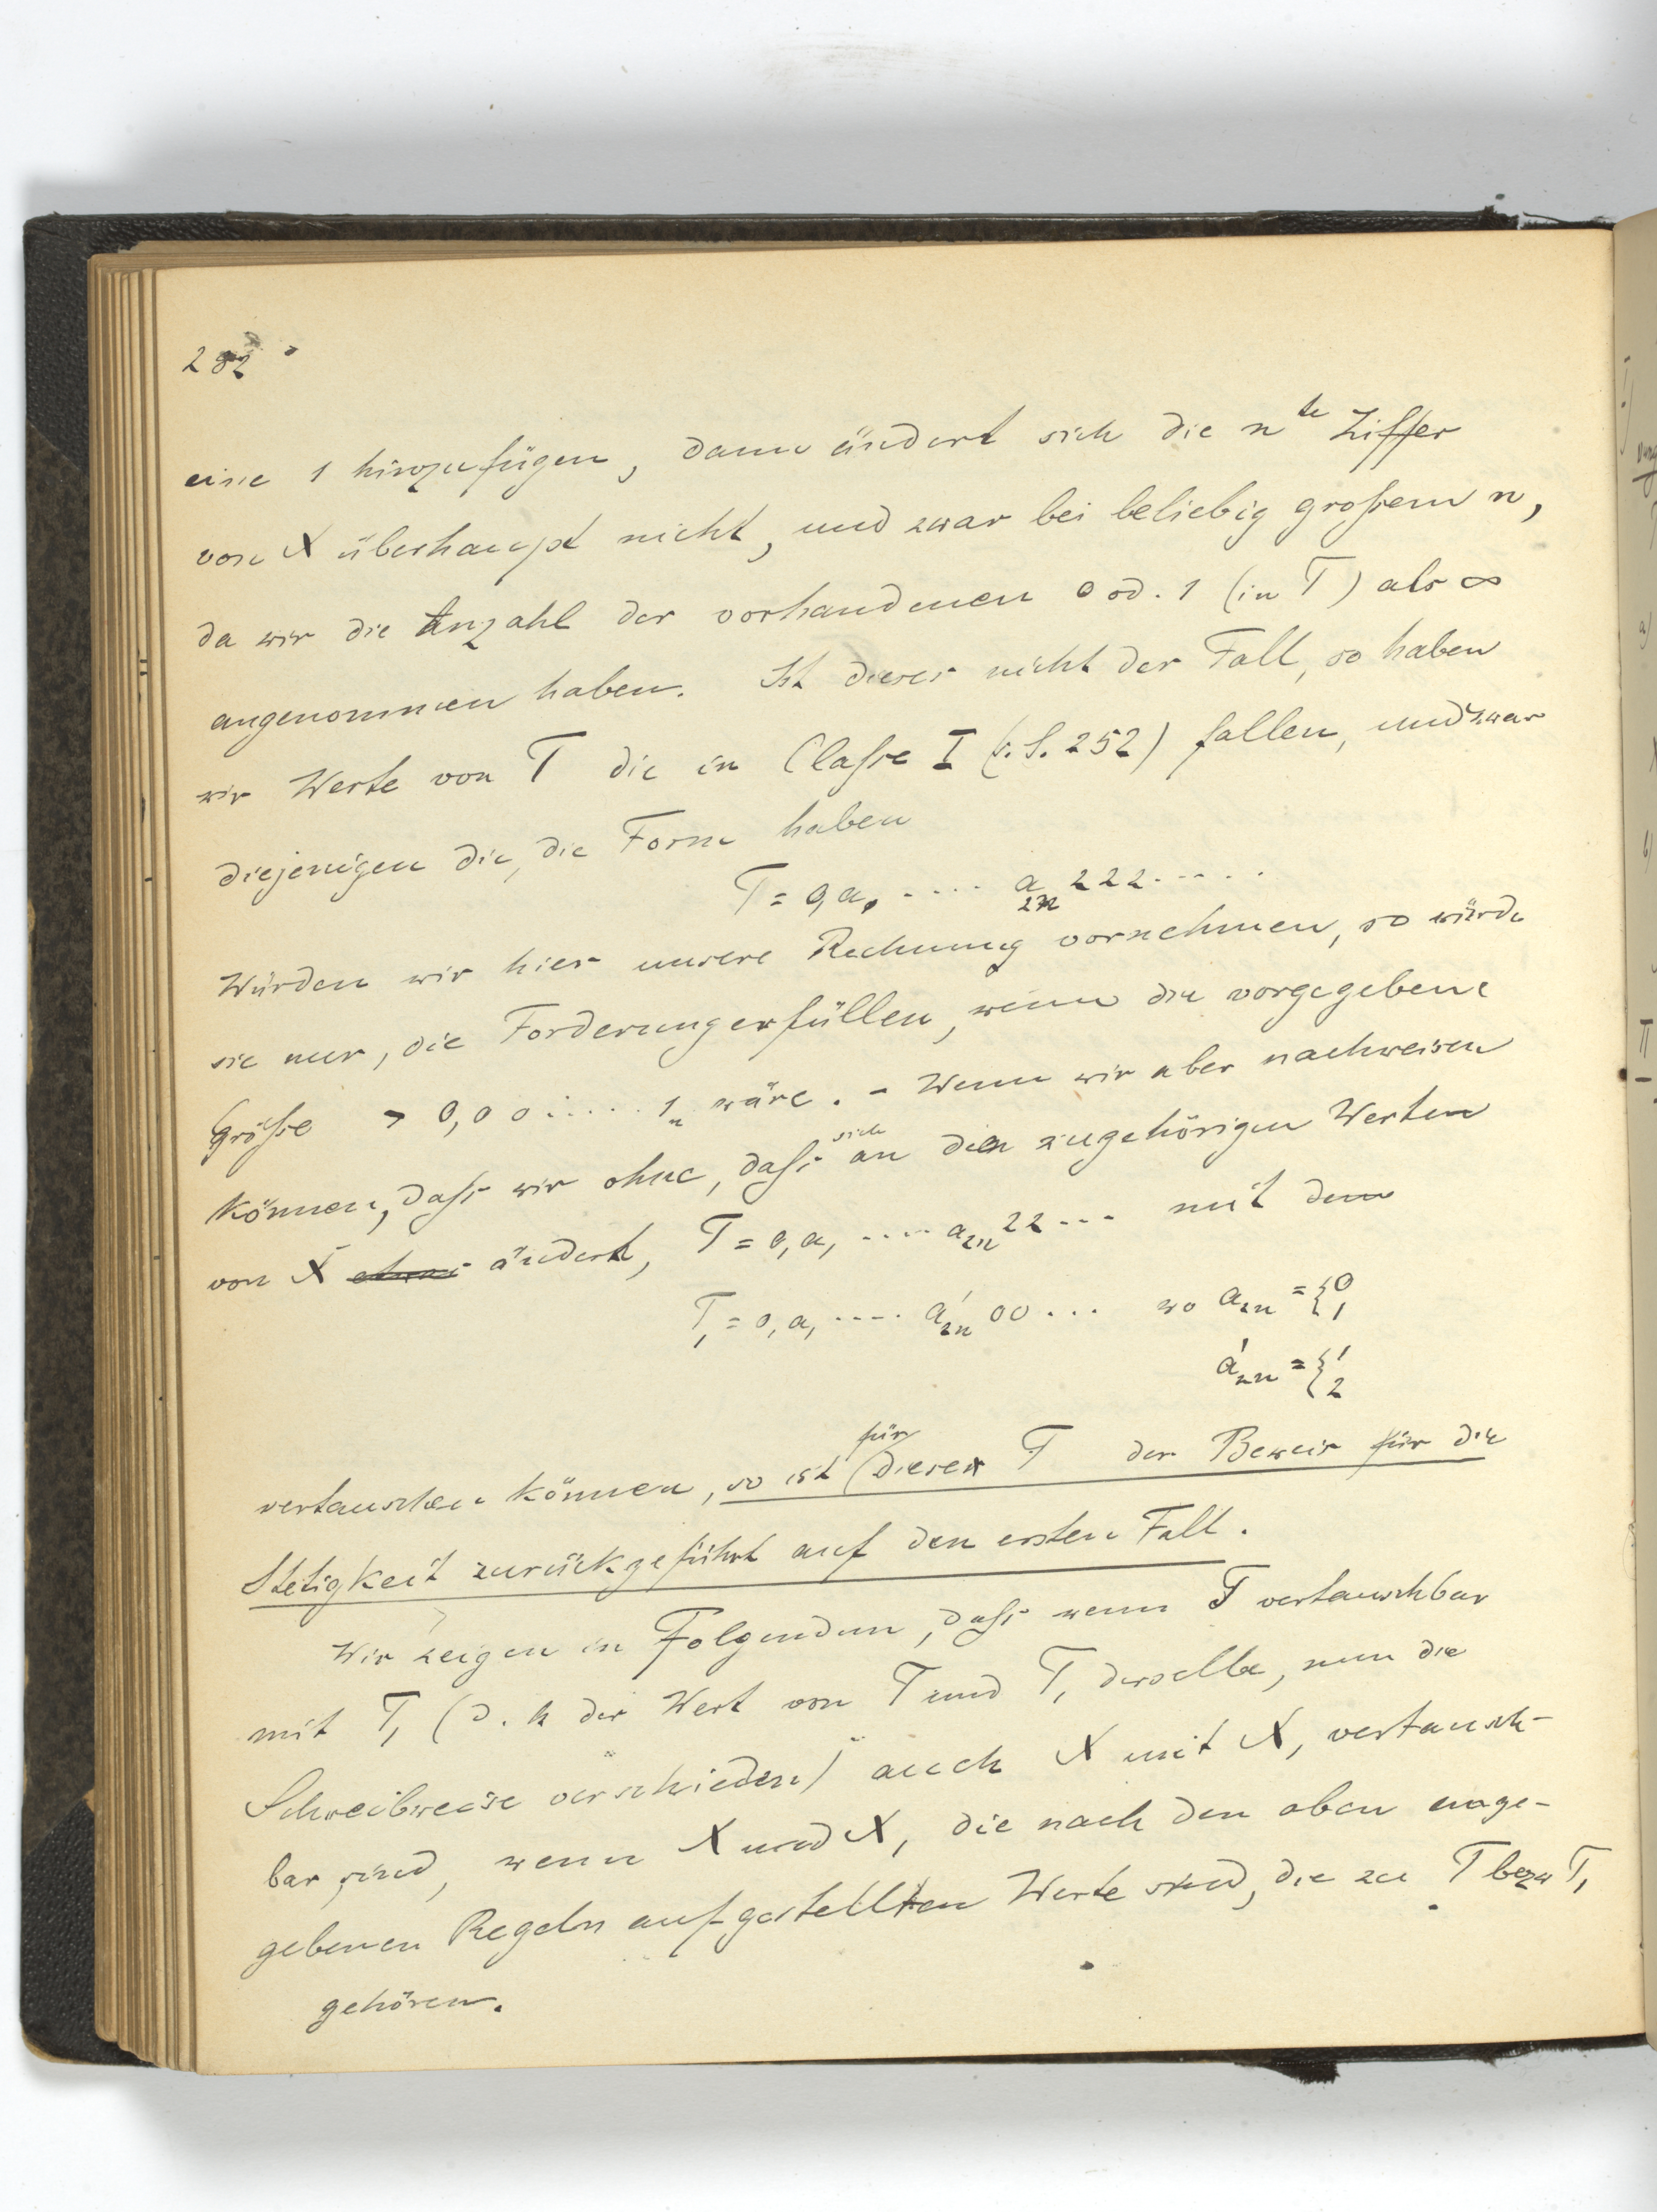 282
eine 1 hinzufügen, dann ändert sich die n^te Ziffer
von X überhaupt nicht, und zwar bei beliebig großem n,
da wir die Anzahl der vorhandenen 0 od. 1 (in T) als ∞
angenommen haben. Ist dieses nicht der Fall, so haben
wir Werte von T die in Claße I (s. S. 252) fallen, und zwar
diejenigen die, die Form haben
T = 0,a₁ .... a_2n 222.....
Würden wir hier unsere Rechnung vornehmen, so würde
sie nur, die Forderung erfüllen, wenn die vorgegebene
Größe > 0,00.....1_n wäre. - Wenn wir aber nachweisen
können, daß wir ohne, daß sich an den zugehörigen Werten
von X ändert, T = 0,a₁ ..... a_2n 22... mit dem
T₁ = 0,a₁ ..... a'_2n 00... wo a_2n = {0 1
a'_2n = {1 2
vertauschen können, so ist für diesen T der Beweis für die
Stetigkeit zurückgeführt auf den ersten Fall.
Wir zeigen in Folgendem, daß wenn T vertauschbar
mit T₁ (d. h der Wert von T und T₁ derselbe, nun die
Schreibweise verschieden) auch X mit X₁ vertausch-
bar sind, wenn X und X₁ die nach den oben ange-
gebenen Regeln aufgestellten Werte sind, die zu T bezw T₁
gehören.